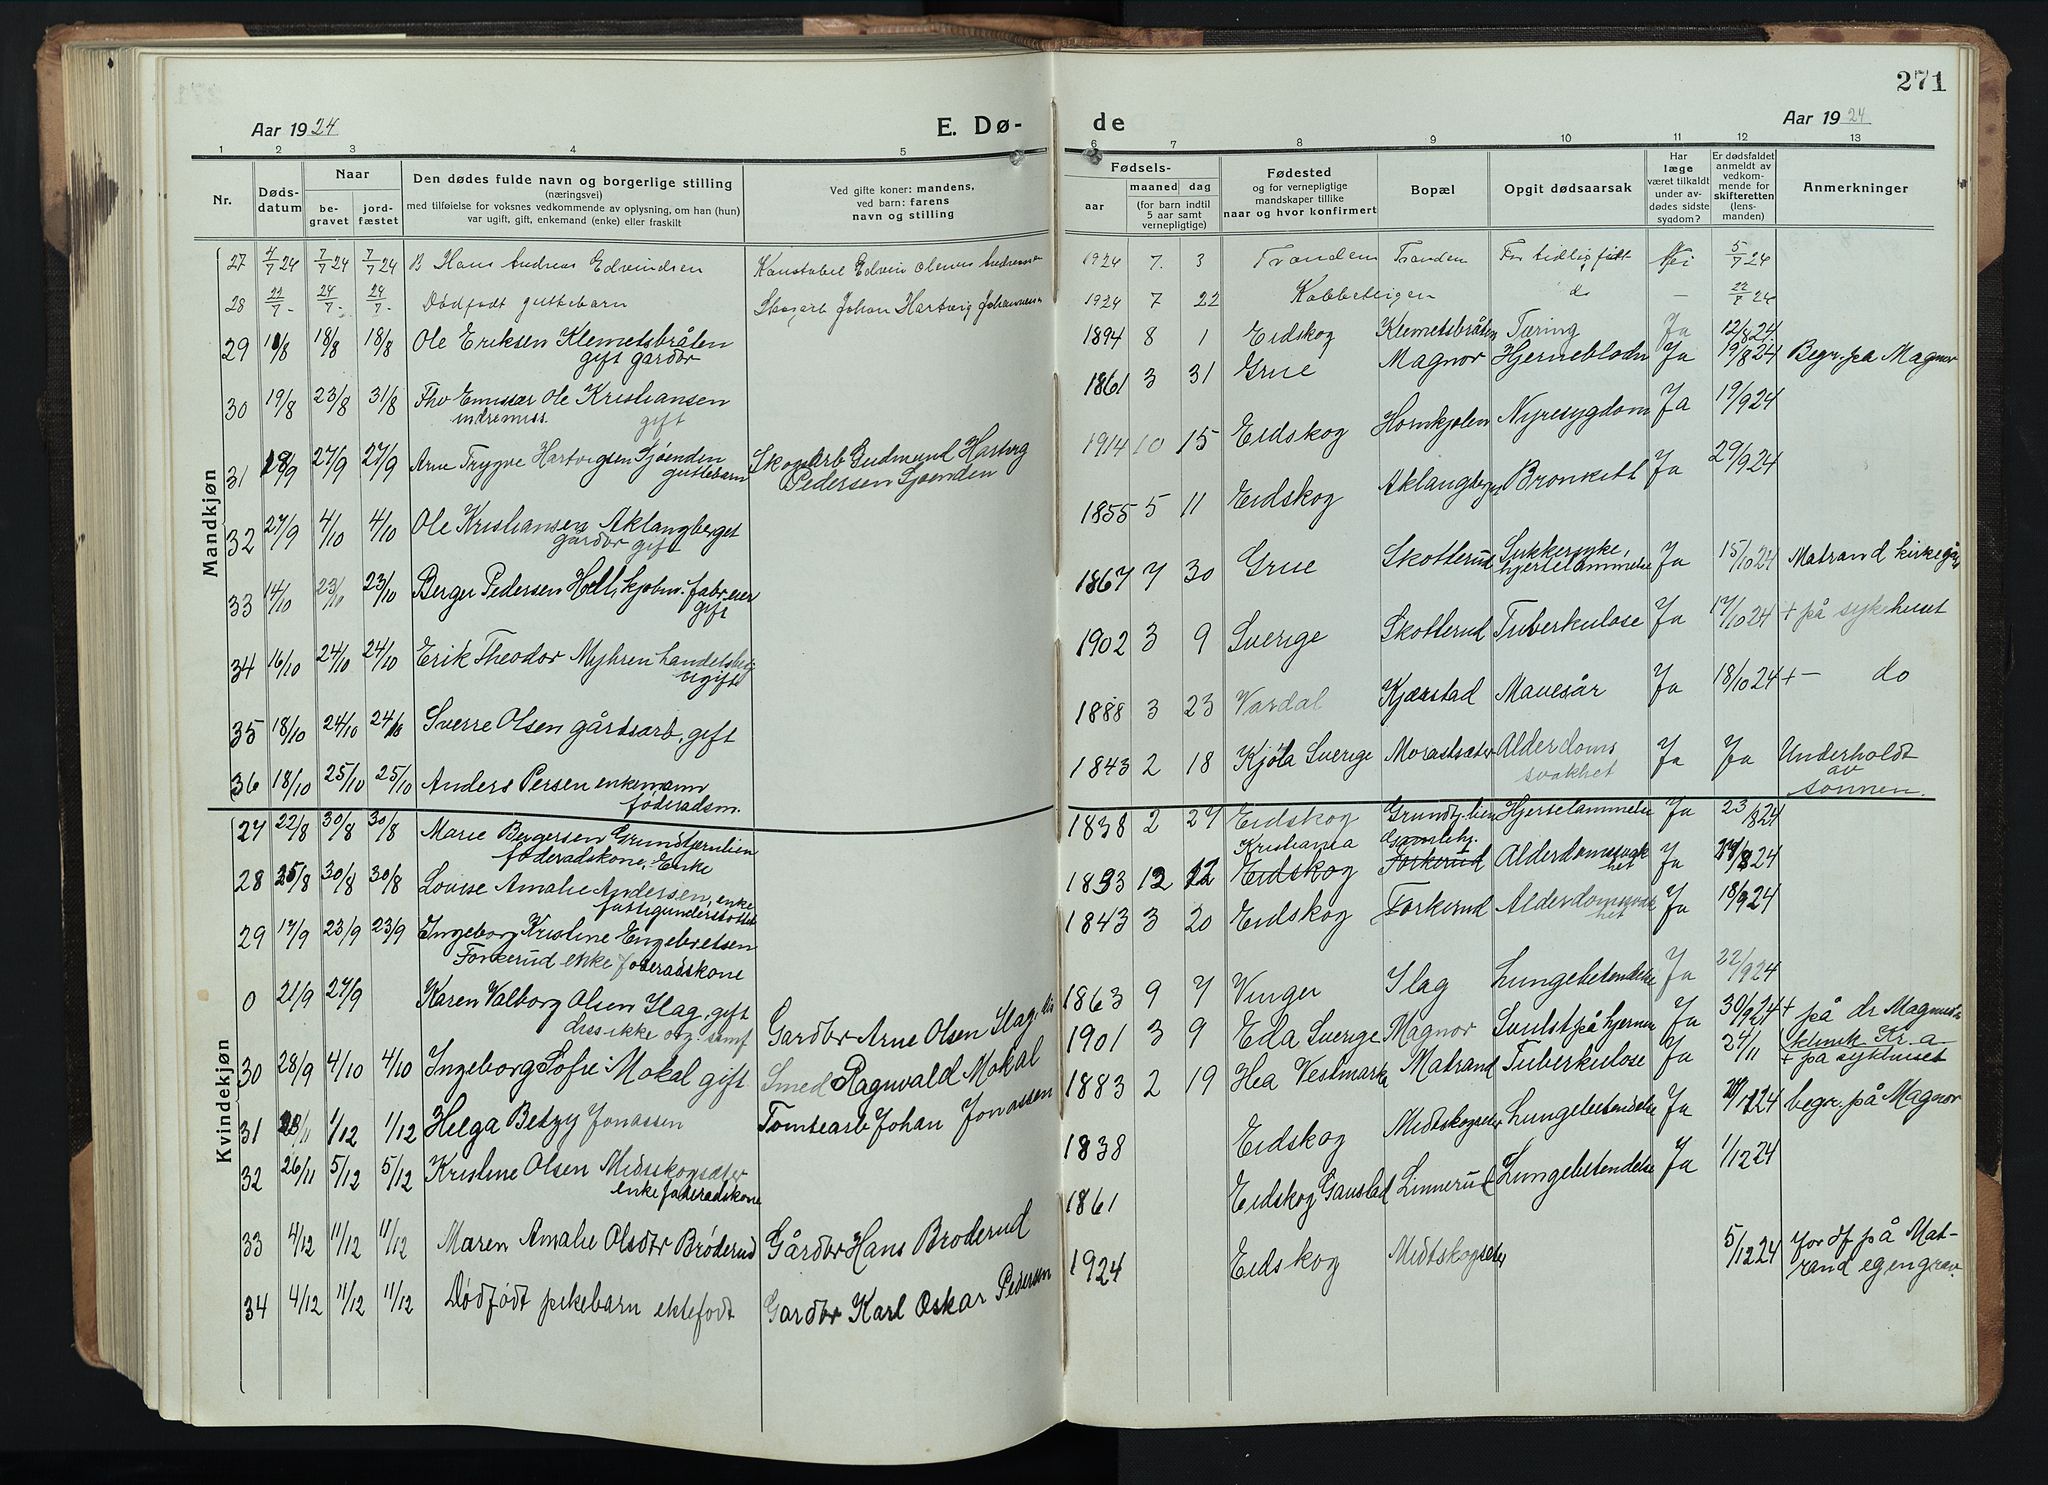 271
Aar 1924
E. Dø-
de
Aar 1924
1 2 3 4 5 6 7 8 9 10 11 12 13
Nr.
Døds-
datum
Naar
be-
gravet
jord-
fæstet
Den dødes fulde navn og borgerlige stilling
(næringsvei)
med tilføielse for voksnes vedkommende av oplysning, om han (hun)
var ugift, gift, enkemand (enke) eller fraskilt
Ved gifte koner: mandens,
ved barn: farens
navn og stilling
Fødsels-
aar
maaned dag
(for barn indtil
5 aar samt
vernepligtige)
Fødested
og for vernepligtige
mandskaper tillike
naar og hvor konfirmert
Bopæl
Opgit dødsaarsak
Har
læge
været tilkaldt
under av-
dødes sidste
sygdom?
Er dødsfaldet
anmeldt av
vedkom-
mende for
skifteretten
(lens-
manden)
Anmerkninger
Mandkjøn
27 4/7 24 7/7 24 7/7 24 B Hans Andreas Edvindsen Konstabel Edvin Olenus Andreassen 1924 7. 3 Tranden Tranden For tidlig født Nei 5/7 24
28 22/7 - 24/7 - 24/7 - Dødfødt guttebarn Skogarb Johan Hartvig Johannesen 1924 7 22 Kobbeteigen do — 22/7 24
29 11/8 18/8 18/8 Ole Eriksen Klemetsbråten 1894 8 1 Eidskog Klemetsbråten Tæring Ja 12/8 24
gift gårdbr
30 19/8 23/8 31/8 Thv Emissær Ole Kristiansen 1861 3 31 Grue Magnor Hjerneblødn Ja 19/8 24 Begr. på Magnor
indremiss. gift
31 18/9 27/9 27/9 Arne Trygve Hartvigsen Sjøenden Skogarb Gudmund Hartvig 1914 10 15 Eidskog Hornkjølen Nyresygdom Ja 19/9 24
guttebarn Pedersen Sjøenden
32 27/9 4/10 4/10 Ole Kristiansen Aklangberget 1855 5 11 Eidskog Aklangberget Bronkitt Ja 29/9 24
gårdbr gift
33 14/10 23/10 23/10 Berger Pedersen Hell, kjøbm. fabr eier 1867 7 30 Grue Skotterud Sukkersyke, Ja 15/10 24 Matrand kirkegår
gift hjertelammelse
34 16/10 24/10 24/10 Erik Theodor Myhren handelsbetj 1902 3 9 Sverige Skotterud Tuberkulose Ja 17/10 24 + på sykehuset
ugift
35 18/10 24/10 24/10 Sverre Olsen gårdsarb, gift 1888 3 23 Vardal Kjærstad Mavesår Ja 18/10 24 + — do
36 18/10 25/10 25/10 Anders Persen enkemann 1843 2 18 Kjøla Sverige Morastsæter Alderdoms Ja Ja Underholdt
føderadsm. svakhet av
sønnen.
Kvindekjøn
27 22/8 30/8 30/8 Marie Bergersen Grundtjernlien 1838 2 27 Eidskog Grundtj.lien Hjertelammelse Ja 23/8 24
føderadskone, Enke
28 25/8 30/8 30/8 Lovise Amalie Andersen, enke 1833 12 12 Kristiania Eidskog Gamlehj. Forkerud Alderdomssvak Ja 27/8 24
fattigunderstøttet het
29 17/9 23/9 23/9 Ingeborg Kristine Engebretsen 1843 3 20 Eidskog Forkerud Alderdomssvak Ja 18/9 24
Forkerud enke føderadskone het
0 21/9 27/9 Karen Valborg Olsen Slag, gift Gårdbr Arne Olsen Slag, 1863 9 7 Vinger Slag Lungebetendelse Ja 22/9 24
diss ikke org. samf
30 28/9 4/10 4/10 Ingeborg Sofie Mokal gift Smed Ragnvald Mokal 1901 3 9 Eda Sverige Magnor Svulst på hjernen Ja 30/9 24 + på dr Magnus
klinik Kr. a
31 23/11 1/12 1/12 Helga Betzy Jonassen Tomtearb Johan Jonassen 1883 2 19 Hea Vestmarka Matrand Tuberkulose Ja 24/11 + på sykehuset
32 26/11 5/12 5/12 Kristine Olsen Midtskogsæter 1838 Eidskog Midtskogseter Lungebetendelse Ja 24 begr. på Magnor
enke føderadskone
33 4/12 11/12 11/12 Maren Amalie Olsdtr Brøderud Gårdbr Hans Brøderud 1861 Eidskog Gaustad Linnerud Lungebetendelse Ja 1/12 24
34 4/12 11/12 11/12 Dødfødt pikebarn ektefødt Gårdbr Karl Oskar Pedersen 1924 Eidskog Midtskogseter 5/12 24 jordf på Mat-
rand egen grav.